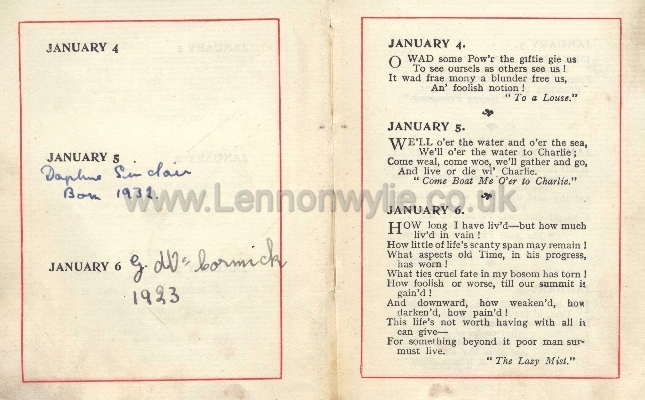 JANUARY 4
JANUARY 5
Daphne Sinclair
Born 1932.
JANUARY 6 G. McCormick
1923
JANUARY 4.
O WAD some Pow'r the giftie gie us
To see oursels as others see us !
It wad frae mony a blunder free us,
An' foolish notion !
"To a Louse."
JANUARY 5.
WE'LL o'er the water and o'er the sea,
We'll o'er the water to Charlie ;
Come weal, come woe, we'll gather and go,
And live or die wi' Charlie.
"Come Boat Me O'er to Charlie."
www.Lennonwylie.co.uk
JANUARY 6.
HOW long I have liv'd—but how much
liv'd in vain !
How little of life's scanty span may remain !
What aspects old Time, in his progress,
has worn !
What ties cruel fate in my bosom has torn !
How foolish or worse, till our summit is
gain'd !
And downward, how weaken'd, how
darken'd, how pain'd !
This life's not worth having with all it
can give—
For something beyond it poor man sur-
must live.
"The Lazy Mist."